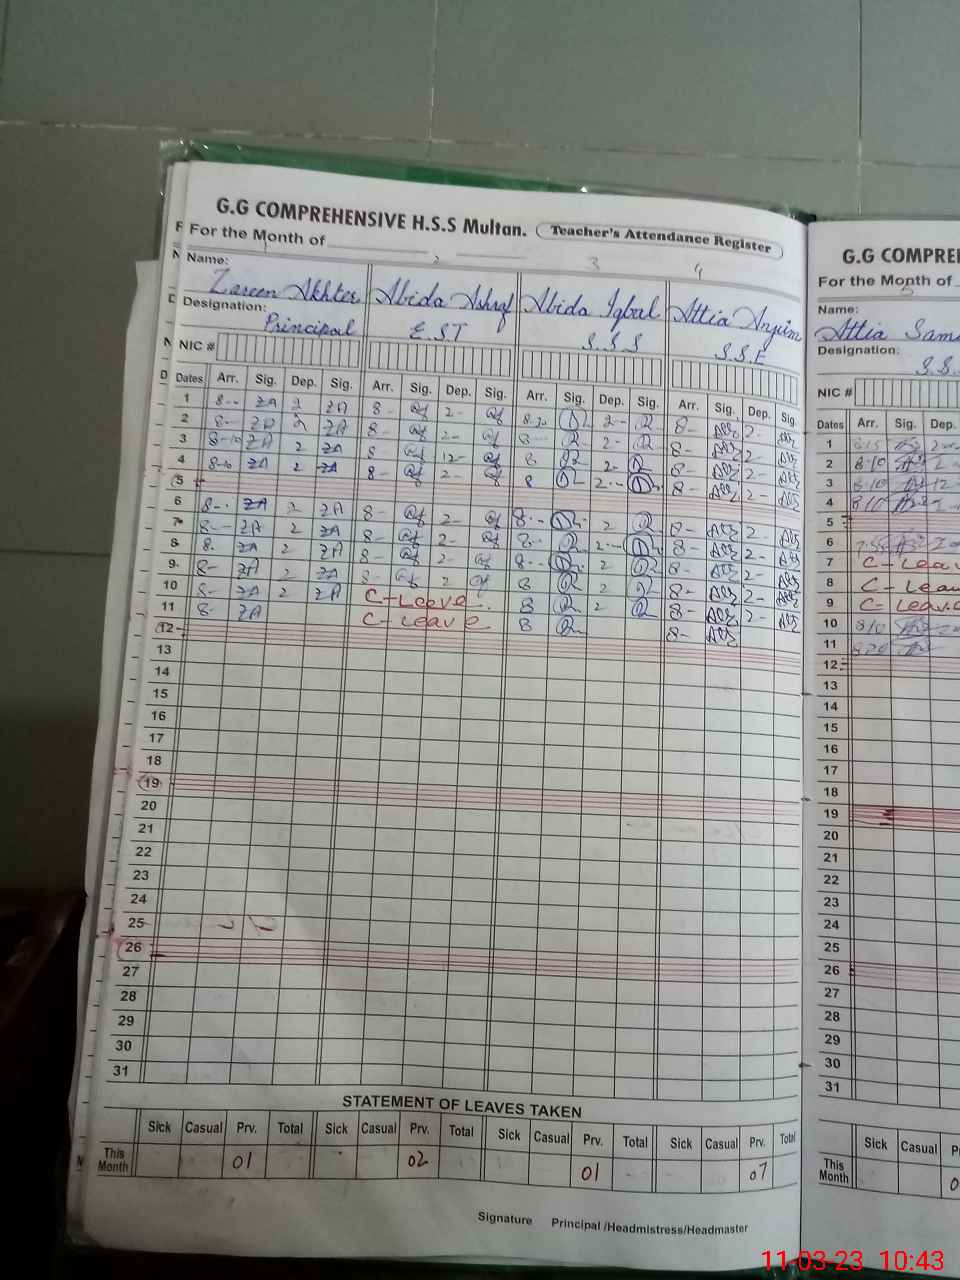 G.G COMPREHENSIVE H.S.S Multan. Teacher's Attendance Register
For the Month of
3 4
Name:
Zareen Akhter Abida Ashraf Abida Iqbal Attia Anjum
Designation:
Principal E.S.T S.S.S S.S.E
NIC #
Dates Arr. Sig. Dep. Sig. Arr. Sig. Dep. Sig. Arr. Sig. Dep. Sig. Arr. Sig. Dep. Sig.
1 8-- ZA 2 ZA 8- 2- 8-20 2-- 8- 2-
2 8-- ZA 2 ZA 8- 2- 8-- 2- 8- 2-
3 8-10 ZA 2 ZA 8 12- 8 2- 8- 2-
4 8-10 ZA 2 ZA 8- 2- 8 2-- 8- 2-
5
6 8-- ZA 2 ZA 8- 2- 8-- 2 8- 2-
7 8-- ZA 2 ZA 8- 2- 8-- 2-- 8- 2-
8 8- ZA 2- ZA 8- 2- 8-- 2 8- 2-
9 8- ZA 2 ZA 8- 2 8 2 8- 2-
10 8- ZA 2 ZA C-Leeve 8 2 8- 2-
11 8- ZA C-Leave 8 8-
12
13
14
15
16
17
18
19
20
21
22
23
24
25
26
27
28
29
30
31
STATEMENT OF LEAVES TAKEN
Sick Casual Prv. Total Sick Casual Prv. Total Sick Casual Prv. Total Sick Casual Prv. Total
This Month 01 02 01 07
Signature Principal /Headmistress/Headmaster
G.G COMPREHE
For the Month of
5
Name:
Attia Sam
Designation:
S.S.
NIC #
Dates Arr. Sig. Dep.
1 8:15
2 8:10 2
3 8:10 12
4 8/10 2
5
6 7:55
7 C-Leav
8 C-Leav
9 C-Leave
10 8/10
11 820
12
13
14
15
16
17
18
19
20
21
22
23
24
25
26
27
28
29
30
31
Sick Casual P
This Month 0
11-03-23 10:43